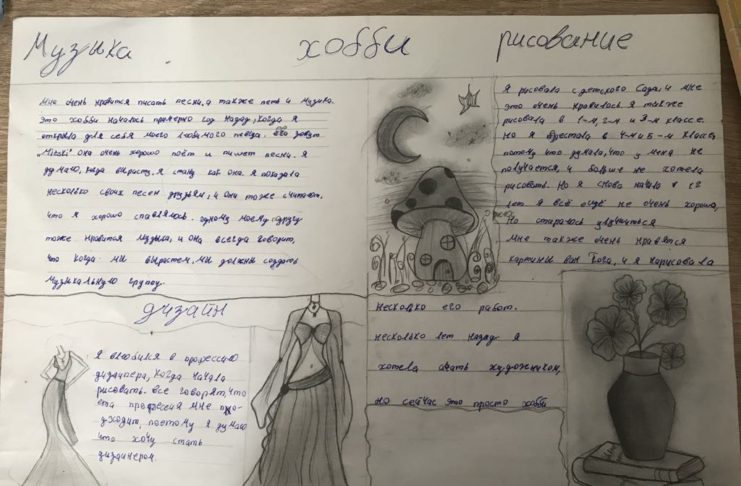 Музыка
хобби
рисование
Мне очень нравится писать песни, а также петь и Музыка.
Это хобби началось примерно год назад, когда я
открыла для себя моего любимого певца. его зовут
"Mitski" она очень хорошо поёт и пишет песни. Я
думаю, когда вырасту, я стану как она. Я показала
несколько своих песен друзьям, и они тоже считают,
что я хорошо справляюсь. одному моему другу
тоже нравится музыка, и она всегда говорит,
что когда мы вырастем, мы должны создать
Музыкальную группу.
Я рисовала с детского Сада, и мне
это очень нравилось Я также
рисовала в 1-м, 2-м и 3-м классе.
Но я в 4-м и 5-м классе
потому что думала, что у меня не
получается, и больше не хотела
рисовать. Но я снова начала в
лет Я всё ещё не очень хорошо,
Но стараюсь улучшиться
Мне также очень нравятся
картины Ван Гога, и я нарисовала
несколько его работ.
несколько лет назад я
хотела стать художником,
но сейчас это просто хобби
дизайн
Я влюбился в профессию
дизайнера, когда начала
рисовать. Все говорят, что
эта профессия мне по-
дходит, поэтому я думаю
что хочу стать
дизайнером.